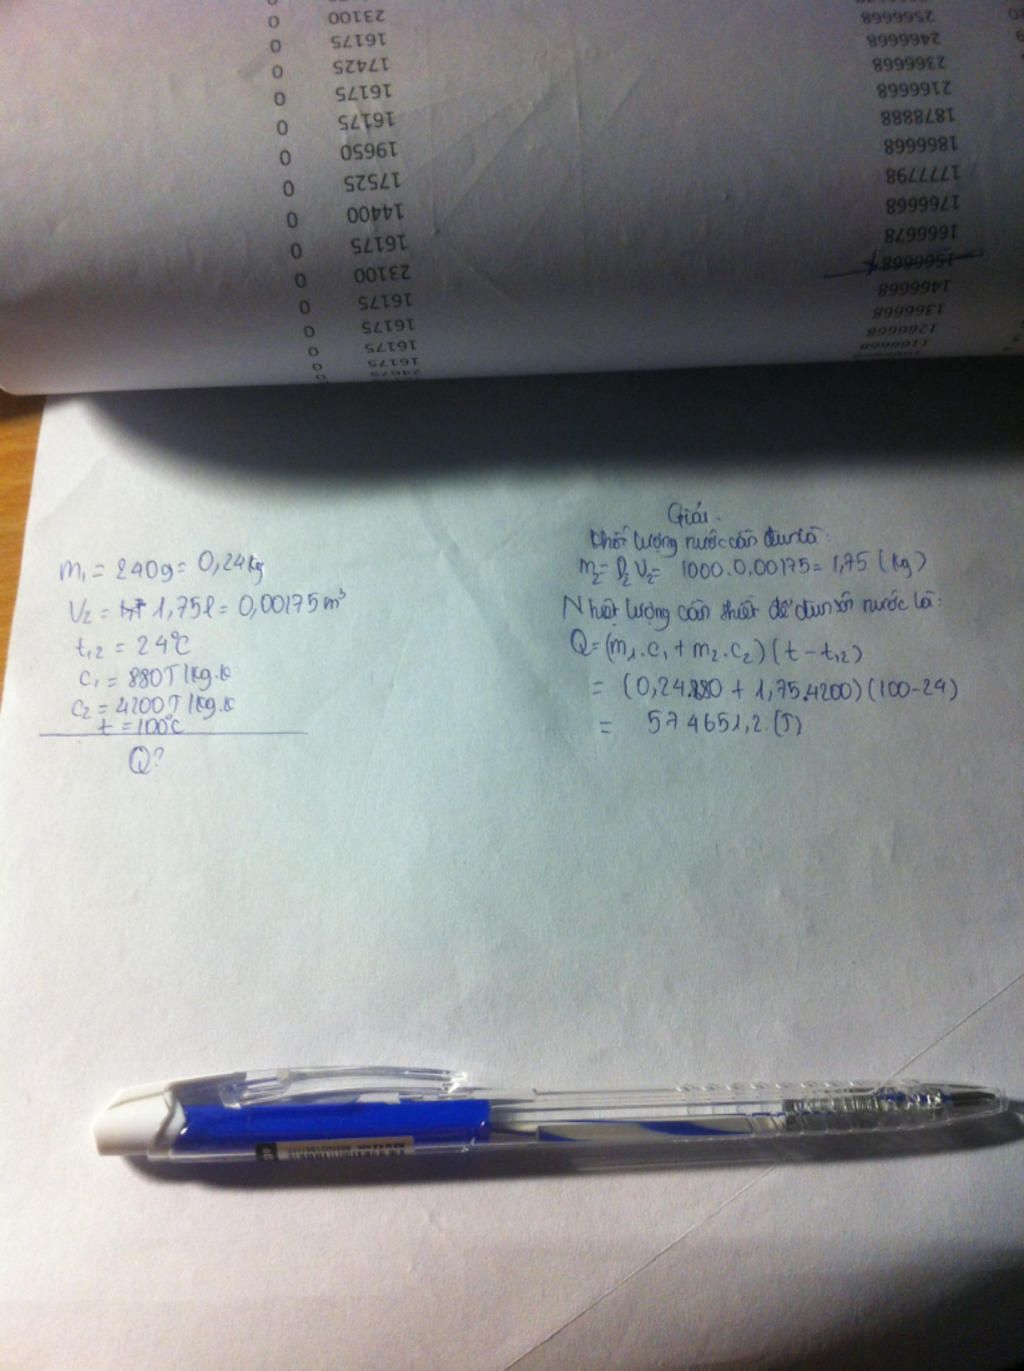 0 23100 2566668
0 16175 2466668
0 17425 2366668
0 16175 2166668
0 16175 1878888
0 19650 1866668
0 17525 1777798
0 14400 1766668
0 16175 1666678
0 23100 1566668
0 16175 1466668
0 16175 1366668
0 16175 1266668
0 16175 1166668
0 24675
m₁ = 240g = 0,24kg
V₂ = 1,75l = 0,00175m³
t₁,₂ = 24°C
c₁ = 880J/kg.k
c₂ = 4200J/kg.k
t = 100°C
Q?
Giải.
Khối lượng nước cần đun là:
m₂ = ρ₂ V₂ = 1000.0,00175 = 1,75 (kg)
Nhiệt lượng cần thiết để đun sôi nước là:
Q = (m₁.c₁ + m₂.c₂)(t - t₁,₂)
= (0,24.880 + 1,75.4200)(100-24)
= 574651,2 (J)